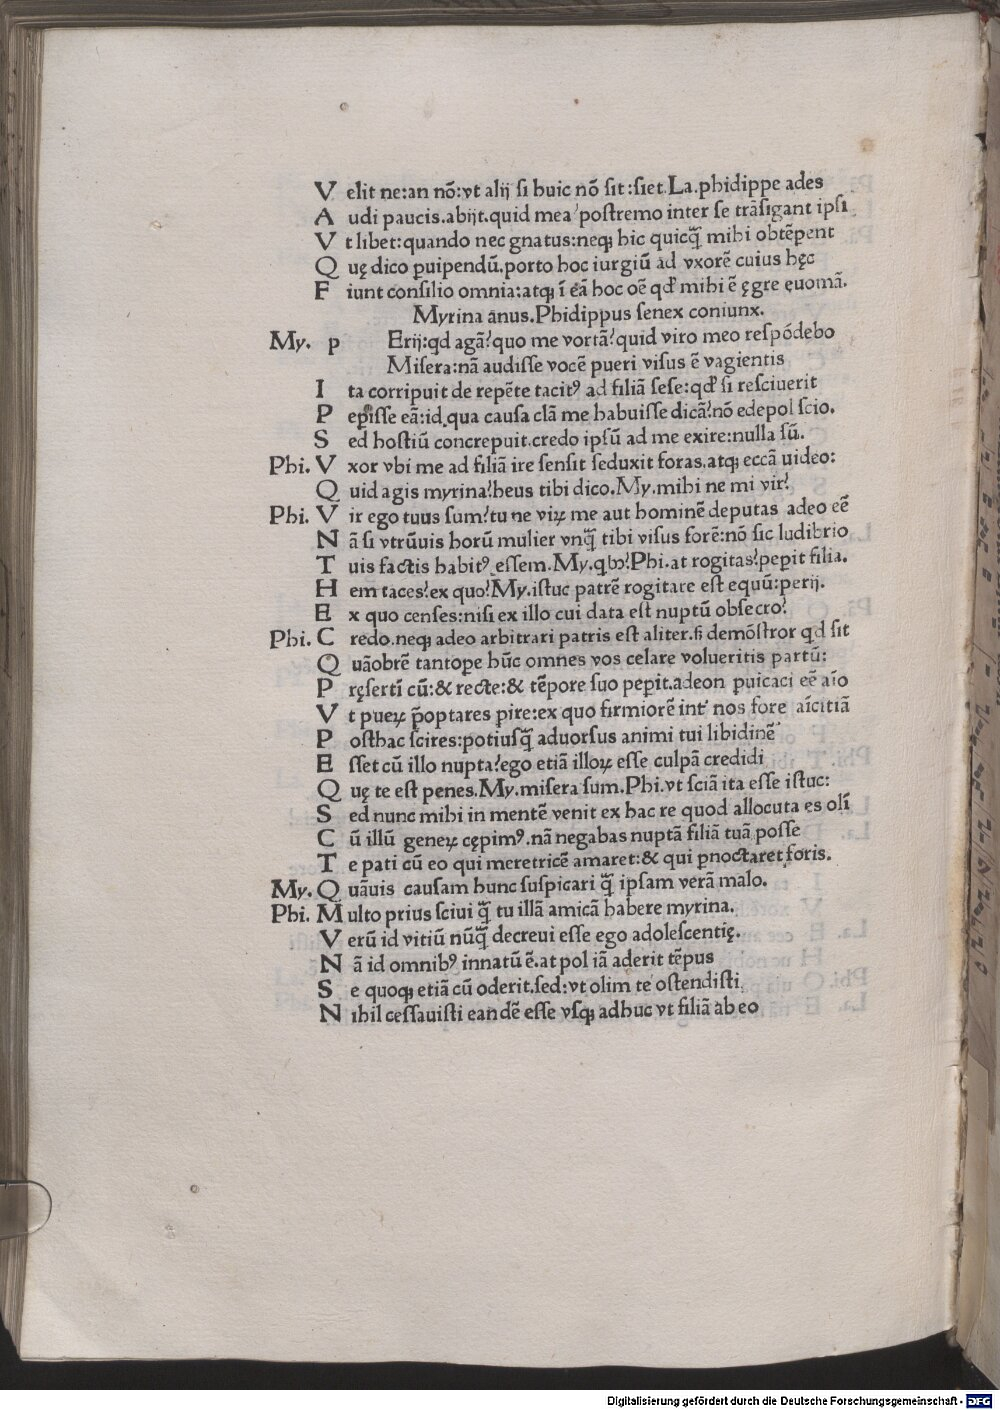 V elit ne:an nō:vt alij si huic nō sit:siet.La.phidippe ades
A udi paucis.abijt.quid mea postremo inter se trāsigant ipsi
V t libet:quando nec gnatus:neqꝫ hic quicq̄ mihi obtēpent
Q uę dico ꝑuipendū.porto hoc iurgiū ad vxorē cuius hęc
F iunt consilio omnia:atqꝫ ī eā hoc oē qđ mihi ē ęgre ęuomā.
Myrina anus.Phidippus senex coniunx.
My. p Erij:qd agā?quo me vortā?quid viro meo respōdebo
Misera:nā audisse vocē pueri visus ē vagientis
I ta corripuit de repēte tacitꝰ ad filiā sese:qđ si resciuerit
P episse eā:id qua causa clā me habuisse dicā?nō edepol scio.
S ed hostiū concrepuit.credo ipsū ad me exire:nulla sū.
Phi. V xor vbi me ad filiā ire sensit seduxit foras.atqꝫ eccā uideo:
Q uid agis myrina?heus tibi dico.My.mihi ne mi vir?
Phi. V ir ego tuus sum?tu ne viꝝ me aut hominē deputas adeo eē
N ā si vtrūuis horū mulier vnq̄ tibi visus forē:nō sic ludibrio
T uis factis habitꝰ essem.My.qbꝰ?Phi.at rogitas?peꝑit filia.
H em taces?ex quo?My.istuc patrē rogitare est equū:perij.
E x quo censes:nisi ex illo cui data est nuptū obsecro?
Phi. C redo.neqꝫ adeo arbitrari patris est aliter.s̄ demōstror qd sit
Q uāobrē tantope hūc omnes vos celare volueritis partū:
P ręsertī cū:& recte:& tēpore suo peꝑit.adeon ꝑuicaci eē aīo
V t pueꝝ p̄optares ꝑire:ex quo firmiorē int̉ nos fore aīcitiā
P osthac scires:potiusq̄ aduorsus animi tui libidinē
E sset cū illo nupta?ego etiā illoꝝ esse culpā credidi
Q uę te est penes.My.misera sum.Phi.vt sciā ita esse istuc:
S ed nunc mihi in mentē venit ex hac re quod allocuta es olī
C ū illū geneꝝ cępimꝰ.nā negabas nuptā filiā tuā posse
T e pati cū eo qui meretricē amaret:& qui ꝑnoctaret foris.
My. Q uāuis causam hunc suspicari q̄ ipsam verā malo.
Phi. M ulto prius sciui q̄ tu illā amicā habere myrina.
V erū id vitiū nūq̄ decreui esse ego adolescentię.
N ā id omnibꝰ innatū ē.at pol iā aderit tēpus
S e quoqꝫ etiā cū oderit.sed:vt olim te ostendisti
N ihil cessauisti eandē esse vsqꝫ adhuc vt filiā ab eo
Digitalisierung gefördert durch die Deutsche Forschungsgemeinschaft - DFG